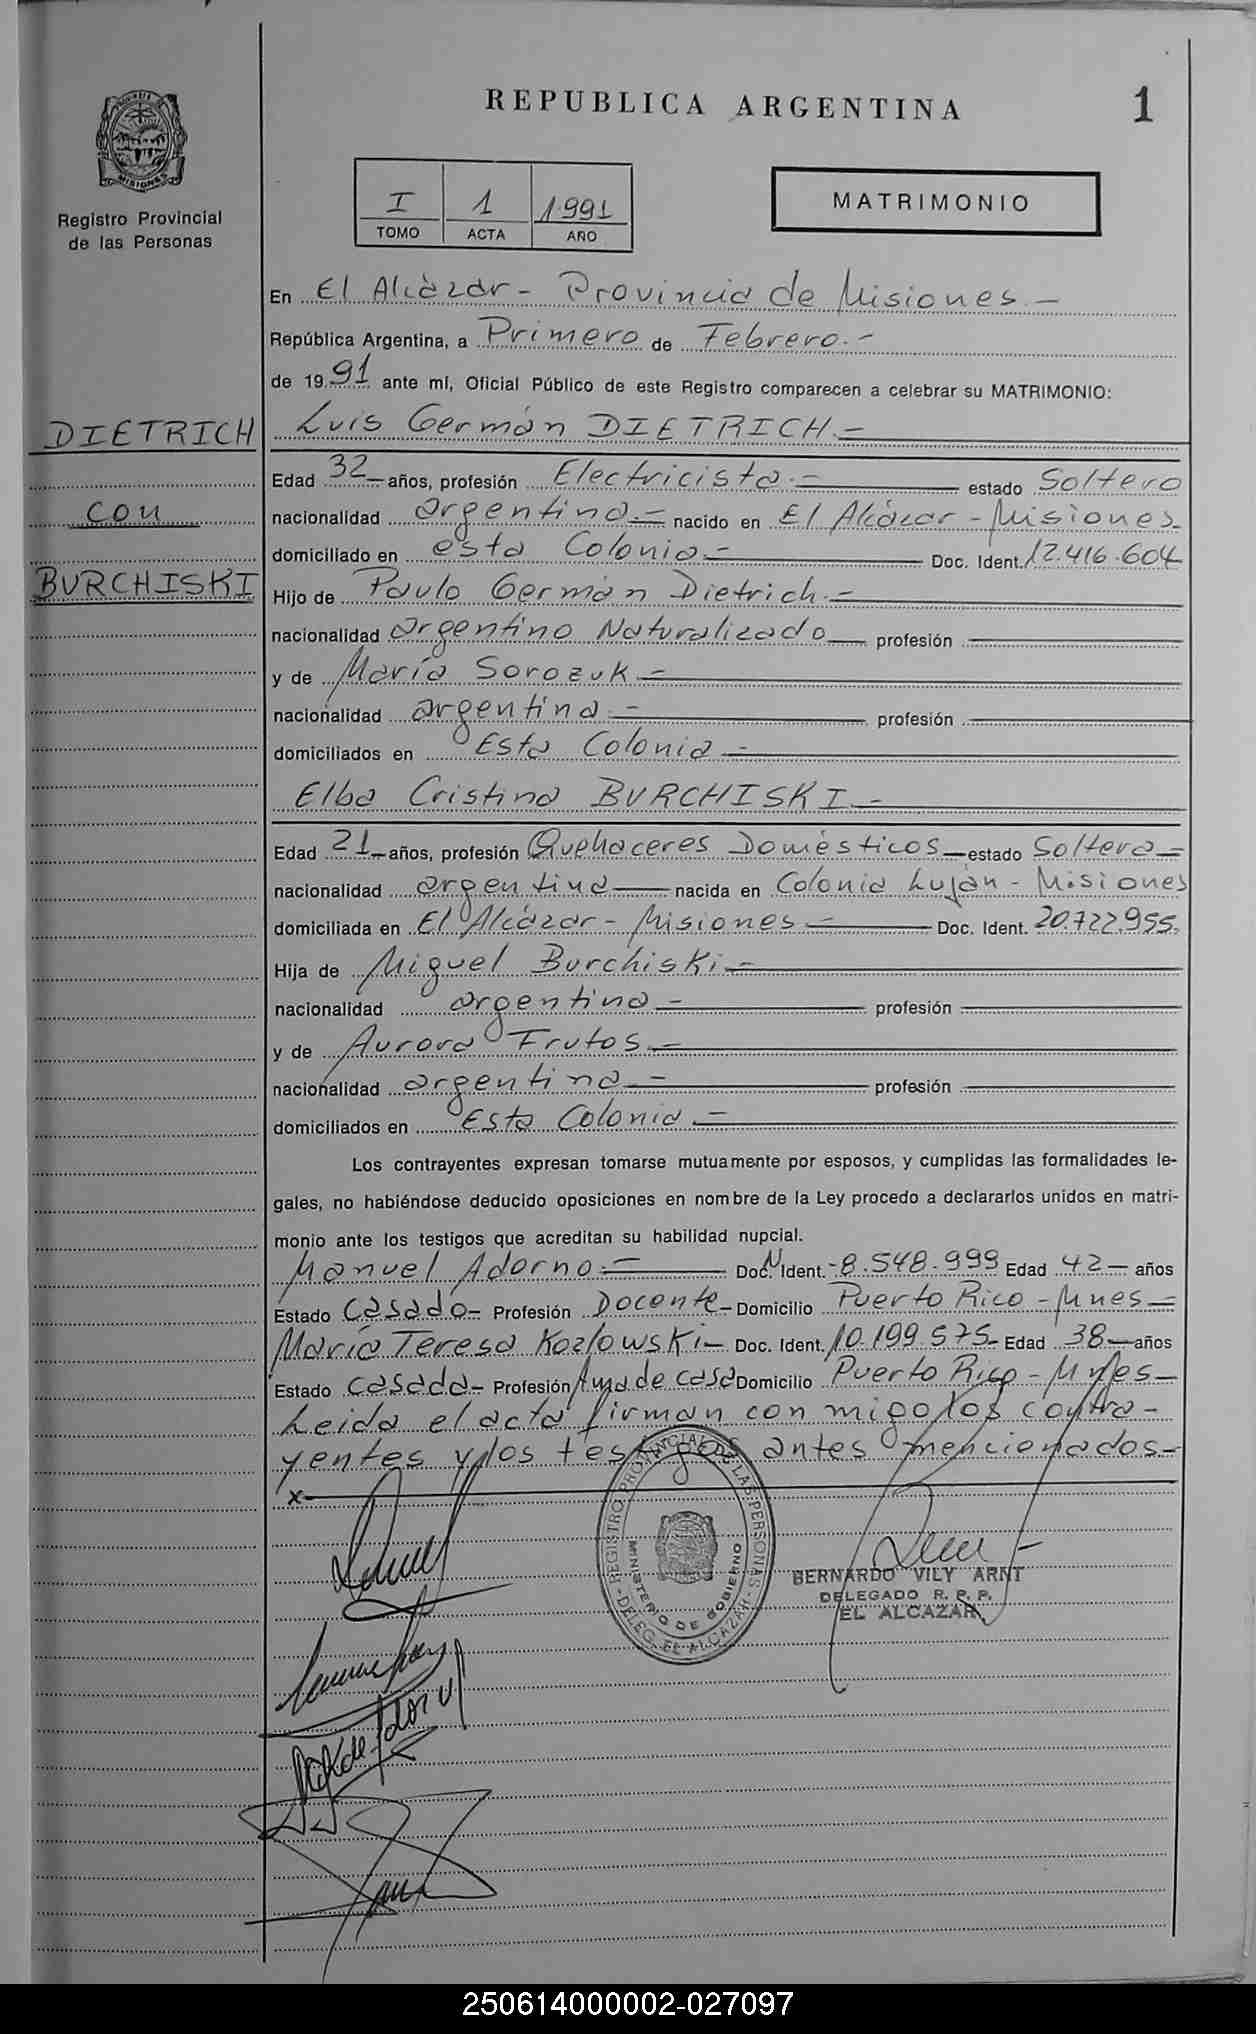 REPUBLICA ARGENTINA
1
PROVINCIA DE
MISIONES
Registro Provincial
de las Personas
I 1 1.991
TOMO ACTA AÑO
MATRIMONIO
En El Alcázar - Provincia de Misiones -
República Argentina, a Primero de Febrero. -
de 19 91 ante mí, Oficial Público de este Registro comparecen a celebrar su MATRIMONIO:
DIETRICH
con
BURCHISKI
Luis Germán DIETRICH. -
Edad 32 - años, profesión Electricista. - estado Soltero
nacionalidad argentina. - nacido en El Alcázar - Misiones.
domiciliado en esta Colonia. - Doc. Ident. 12.416.604
Hijo de Paulo Germán Dietrich. -
nacionalidad argentino Naturalizado profesión
y de María Sorozuk. -
nacionalidad argentina. - profesión
domiciliados en Esta Colonia -
Elba Cristina BURCHISKI. -
Edad 21 - años, profesión Quehaceres Domésticos - estado Soltera -
nacionalidad argentina - nacida en Colonia Luján - Misiones
domiciliada en El Alcázar - Misiones - Doc. Ident. 20.722.955.
Hija de Miguel Burchiski. -
nacionalidad argentina - profesión
y de Aurora Frutos. -
nacionalidad argentina - profesión
domiciliados en Esta Colonia -
Los contrayentes expresan tomarse mutuamente por esposos, y cumplidas las formalidades le-
gales, no habiéndose deducido oposiciones en nombre de la Ley procedo a declararlos unidos en matri-
monio ante los testigos que acreditan su habilidad nupcial.
Manuel Adorno. - Doc. Ident. - 8.548.999 Edad 42 - años
Estado Casado - Profesión Docente - Domicilio Puerto Rico - Mnes -
María Teresa Kozlowski - Doc. Ident. 10.199.575 - Edad 38 - años
Estado Casada - Profesión Ama de casa Domicilio Puerto Rico - Mnes -
Leida el acta firman con migo los contra-
yentes y los testigos antes mencionados -
x
REGISTRO PROVINCIAL DE LAS PERSONAS
MINISTERIO DE GOBIERNO
- DELEG. EL ALCAZAR -
BERNARDO VILY ARNT
DELEGADO R. P. P.
EL ALCAZAR
250614000002-027097